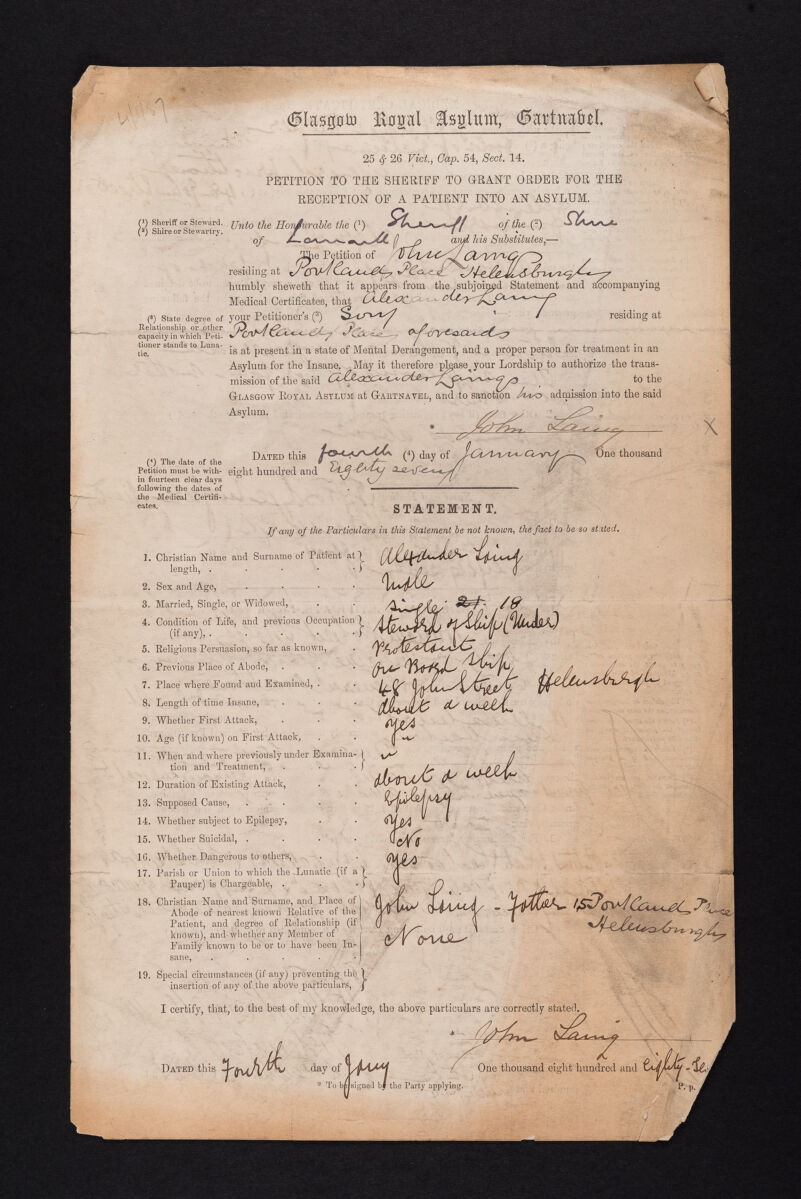 Glasgow Royal Asylum, Gartnavel.
25 & 26 Vict., Cap. 54, Sect. 14.
PETITION TO THE SHERIFF TO GRANT ORDER FOR THE
RECEPTION OF A PATIENT INTO AN ASYLUM.
(1) Sheriff or Steward.
(2) Shire or Stewartry.
Unto the Honourable the (1) Sheriff of the (2) Shire
of Lanark and his Substitutes,—
The Petition of John Laing
residing at Portland Place Helensburgh
humbly sheweth that it appears from the subjoined Statement and accompanying
Medical Certificates, that Alexander Laing
(3) State degree of
Relationship or other
capacity in which Peti-
tioner stands to Luna-
tic.
your Petitioner's (3) Son residing at
Portland Place aforesaid
is at present in a state of Mental Derangement, and a proper person for treatment in an
Asylum for the Insane. May it therefore please your Lordship to authorize the trans-
mission of the said Alexander Laing to the
GLASGOW ROYAL ASYLUM AT GARTNAVEL, and to sanction his admission into the said
Asylum.
John Laing X
(4) The date of the
Petition must be with-
in fourteen clear days
following the dates of
the Medical Certifi-
cates.
DATED this fourth (4) day of January One thousand
eight hundred and Eighty seven
STATEMENT.
If any of the Particulars in this Statement be not known, the fact to be so stated.
1. Christian Name and Surname of Patient at length, . Alexander Laing
2. Sex and Age, Male
3. Married, Single, or Widowed, Single 21 18
4. Condition of Life, and previous Occupation (if any), . Steward of Ship (Under)
5. Religious Persuasion, so far as known, Protestant
6. Previous Place of Abode, On Board Ship
7. Place where Found and Examined, 48 John Street Helensburgh
8. Length of time Insane, about a week
9. Whether First Attack, Yes
10. Age (if known) on First Attack, "
11. When and where previously under Examina-
tion and Treatment, "
12. Duration of Existing Attack, about a week
13. Supposed Cause, Epilepsy
14. Whether subject to Epilepsy, Yes
15. Whether Suicidal, No
16. Whether Dangerous to others, Yes
17. Parish or Union to which the Lunatic (if a
Pauper) is Chargeable, .
18. Christian Name and Surname, and Place of John Laing - Father 15 Portland Place
Abode of nearest known Relative of the Helensburgh
Patient, and degree of Relationship (if
known), and whether any Member of None
Family known to be or to have been In-
sane,
19. Special circumstances (if any) preventing the
insertion of any of the above particulars,
I certify, that, to the best of my knowledge, the above particulars are correctly stated.
* John Laing
DATED this Fourth day of Jany One thousand eight hundred and eighty-Se
* To be signed by the Party applying. P. p.